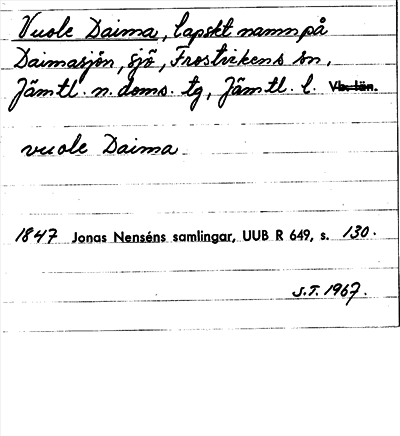 Vuole Daima, lapskt namn på
Daimasjön, sjö, Frostvikens sn,
Jämtl. n. doms. tg, Jämtl. l. Vb. län.
vuole Daima
1847 Jonas Nenséns samlingar, UUB R 649, s. 130.
S.T. 1967.